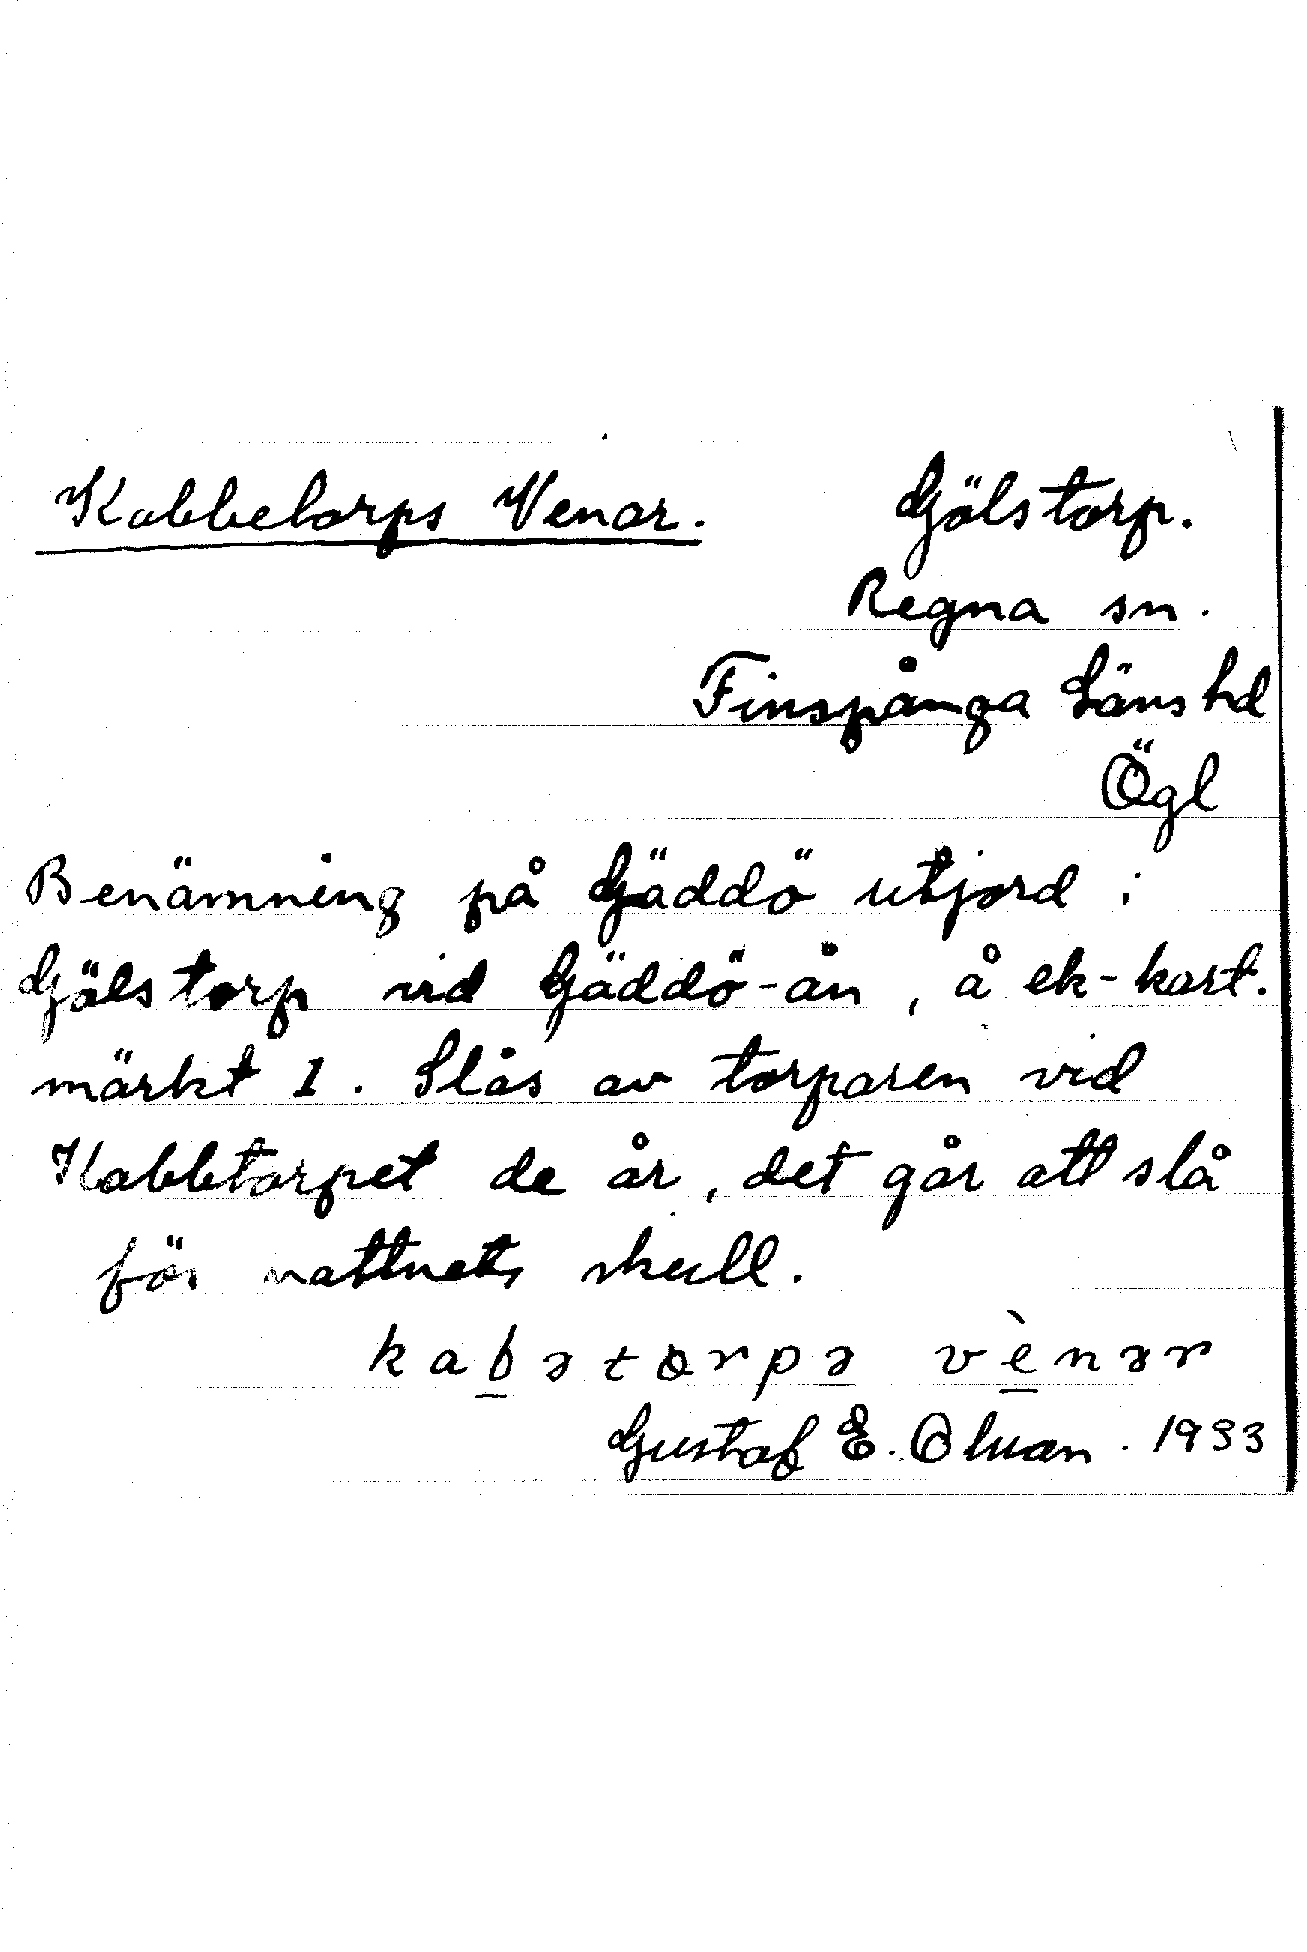 Kabbetorps Venar. Gölstorp.
Regna sn.
Finspånga Läns hd
Ögl
Benämning på Gäddö utjord i
Gölstorp vid Gäddö-ån, å ek-kart.
märkt 1. Slås av torparen vid
Kabbtorpet de år, det går att slå
för vattnets skull.
kabətorpə vènər
Gustaf E. Olman. 1933